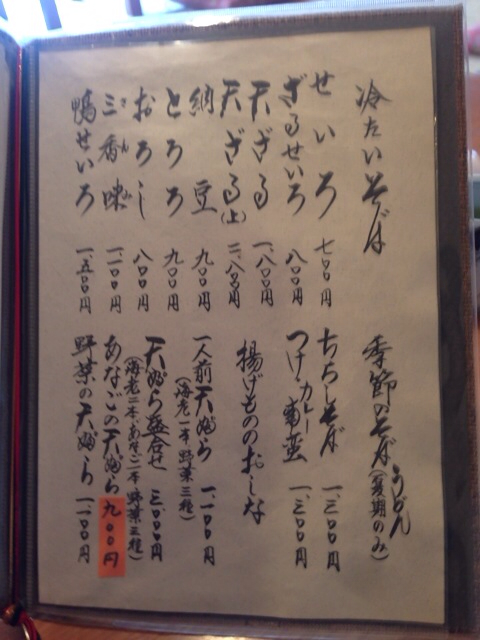 冷たいそば
せいろ 七〇〇円
ざるせいろ 八〇〇円
天ざる 一、八〇〇円
天ざる(上) 二、八〇〇円
納豆 九〇〇円
とろろ 九〇〇円
おろし 八〇〇円
三香味 一、一〇〇円
鴨せいろ 一、五〇〇円
季節のそば うどん (夏期のみ)
ちらしそば 一、三〇〇円
つけカレー南蛮 一、三〇〇円
揚げもののおしな
一人前天ぷら 一、一〇〇円
(海老一本・野菜三種)
天ぷら盛合せ 三〇〇〇円
(海老二本・あなご一本・野菜三種)
あなごの天ぷら 九〇〇円
野菜の天ぷら 一、一〇〇円